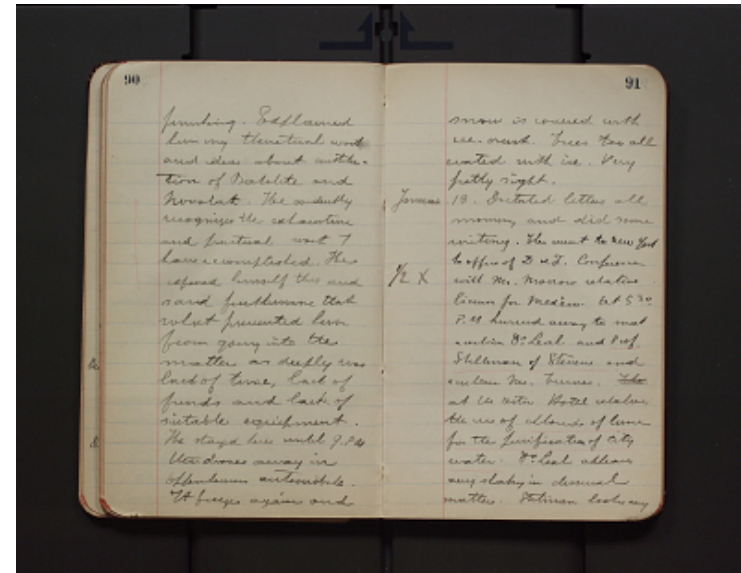 90
finishing. Explained
him my theoretical work
and ideas about constitu-
tion of Bakelite and
Novolak. He evidently
recognizes the exhaustive
and practical work I
have accomplished. He
expressed himself thus and
said furthermore that
what prevented him
from going into the
matter as deeply was
lack of time, lack of
funds and lack of
suitable equipment.
He stayed here until 9 P.M.
then drove away in
automobile.
It freezes again and
91
snow is covered with
ice-crust. Trees too all
coated with ice. Very
pretty sight.
January 13. Dictated letters all
morning and did some
writing. Then went to New York
to office of D & T. Conference
with Mr. Morrow relative
license for Mexico. At 5 30
P.M. hurried away to meet
Dr Leal and Prof.
Stillman of Stevens and
Mr.
1/2 X
at Hotel relative
the use of chloride of lime
for the purification of city
water. Dr Leal
very shaky in chemical
matters. Stillman looks very